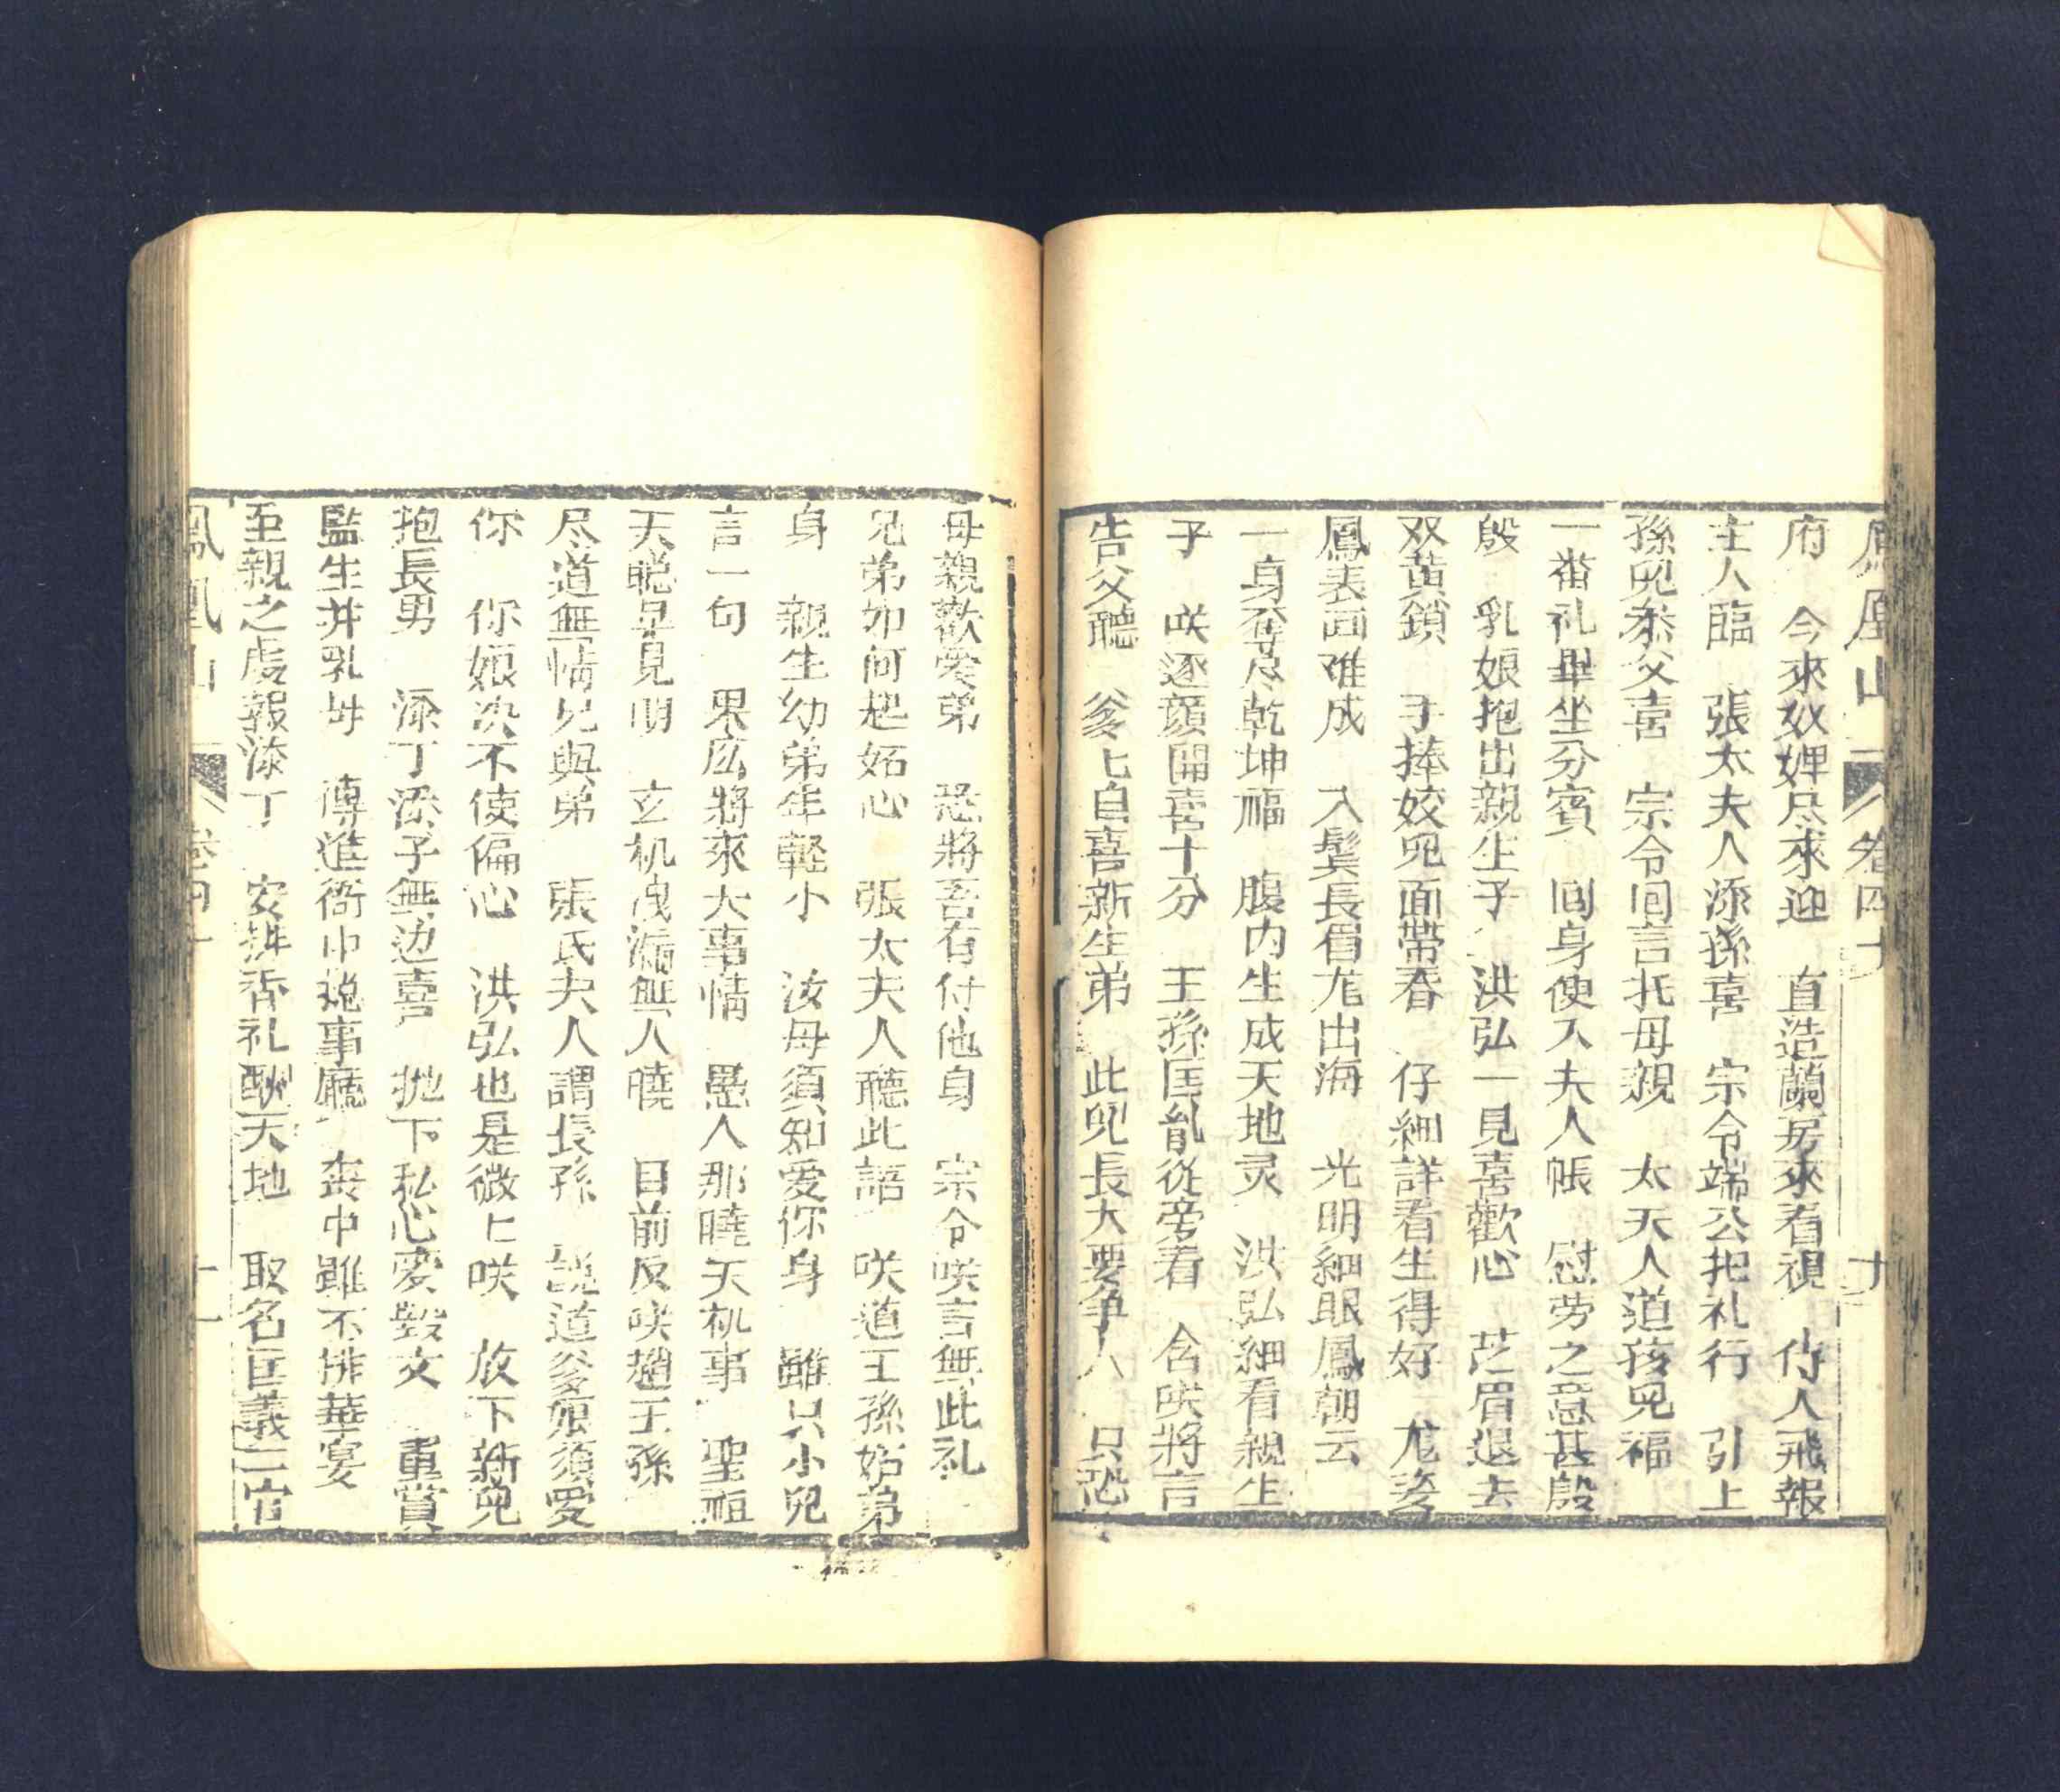 鳳凰山 卷四十 十
府 今來奴婢尽來迎 直造蘭房來看視 侍人飛報
主人臨 張太夫人添孫喜 宗令端公把礼行 引上
孫兒恭父喜 宗令回言托母親 太夫人道孩兒福
一番礼畢坐分賓 回身便入夫人帳 慰劳之意甚殷
殷 乳娘抱出親生子 洪弘一見喜歡心 芝眉退去
双黄鎖 手捧姣兒面帶春 仔細詳看生得好 尨姿
鳳表画难成 入鬓長眉尨出海 光明細眼鳳朝云
一身奪尽乾坤福 腹内生成天地灵 洪弘細看親生
子 咲逐顔開喜十分 王孫匡胤從旁看 含咲將言
告父聽 爹匕自喜新生弟 此兒長大要争人 只恐
母親歡愛弟 恐將吾有付他身 宗令咲言無此礼
兄弟如何起妬心 張太夫人聽此語 咲道王孫妬弟
身 親生幼弟年輕小 汝母須知爱你身 雖只小兒
言一句 果庅將來大事情 愚人那曉天机事 聖祖
天聪早見明 玄机洩漏無人曉 目前反咲趙王孫
尽道無情兄與弟 張氏夫人謂長孫 説道爹娘須愛
你 你娘决不使偏心 洪弘也是微匕咲 放下新兒
抱長男 添丁添子無边喜 抛下私心变毀文 重賞
監生并乳母 傳進衙中説事廳 喪中雖不排華宴
至親之處報添丁 安排香礼酬天地 取名匡義二官
鳳凰山 卷四十 十一